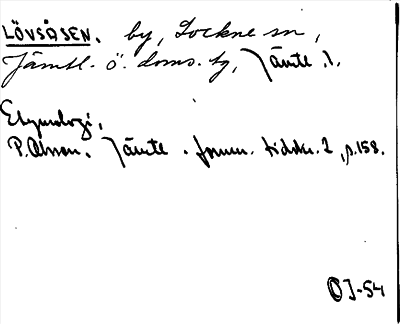 LÖVSÅSEN. by, Lockne sn,
Jämtl. ö. doms. tg, Jämtl. l.
Etymologi,
P. Olsson. Jämtl. fornm. tidskr. 2, s. 158.
OJ-54